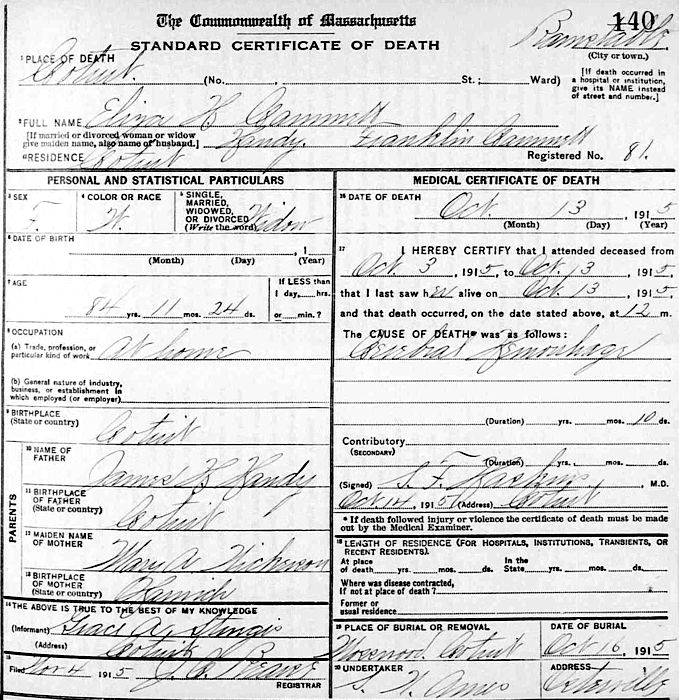 140
The Commonwealth of Massachusetts
STANDARD CERTIFICATE OF DEATH
Barnstable
(City or town.)
1 PLACE OF DEATH
Cotuit.
(No. St.; Ward)
[If death occurred in a hospital or institution, give its NAME instead of street and number.]
2 FULL NAME Eliza H Gammett
[If married or divorced woman or widow give maiden name, also name of husband.] Handy. Franklin Gammett
RESIDENCE Cotuit
Registered No. 81.
PERSONAL AND STATISTICAL PARTICULARS
3 SEX F.
4 COLOR OR RACE W.
5 SINGLE, MARRIED, WIDOWED, OR DIVORCED (Write the word) Widow
6 DATE OF BIRTH
, 1
(Month) (Day) (Year)
7 AGE
84 yrs. 11 mos. 24 ds.
If LESS than 1 day, hrs. or min.?
8 OCCUPATION
(a) Trade, profession, or particular kind of work At home
(b) General nature of industry, business, or establishment in which employed (or employer)
9 BIRTHPLACE
(State or country)
Cotuit
PARENTS
10 NAME OF FATHER
James H Handy
11 BIRTHPLACE OF FATHER (State or country)
Cotuit
12 MAIDEN NAME OF MOTHER
Mary A Nickerson
13 BIRTHPLACE OF MOTHER (State or country)
Harwich
14 THE ABOVE IS TRUE TO THE BEST OF MY KNOWLEDGE
(Informant) Grace A Sturgis
(Address) Cotuit
15
Filed Nov 4, 1915
REGISTRAR
MEDICAL CERTIFICATE OF DEATH
16 DATE OF DEATH
Oct. 13, 1915
(Month) (Day) (Year)
17 I HEREBY CERTIFY that I attended deceased from
Oct. 3, 1915, to Oct. 13, 1915,
that I last saw her alive on Oct. 13, 1915,
and that death occurred, on the date stated above, at 12 m.
The CAUSE OF DEATH* was as follows:
Cerebral Hemorrhage
(Duration) yrs. mos. 10 ds.
Contributory
(SECONDARY)
(Duration) yrs. mos. ds.
(Signed) S. F. Haskins, M.D.
Oct 14, 1915 (Address) Cotuit
* If death followed injury or violence the certificate of death must be made out by the Medical Examiner.
18 LENGTH OF RESIDENCE (FOR HOSPITALS, INSTITUTIONS, TRANSIENTS, OR RECENT RESIDENTS).
At place of death yrs. mos. ds. In the State yrs. mos. ds.
Where was disease contracted, If not at place of death?
Former or usual residence
19 PLACE OF BURIAL OR REMOVAL
Mosswood Cotuit
DATE OF BURIAL
Oct 16, 1915
20 UNDERTAKER
ADDRESS
Osterville